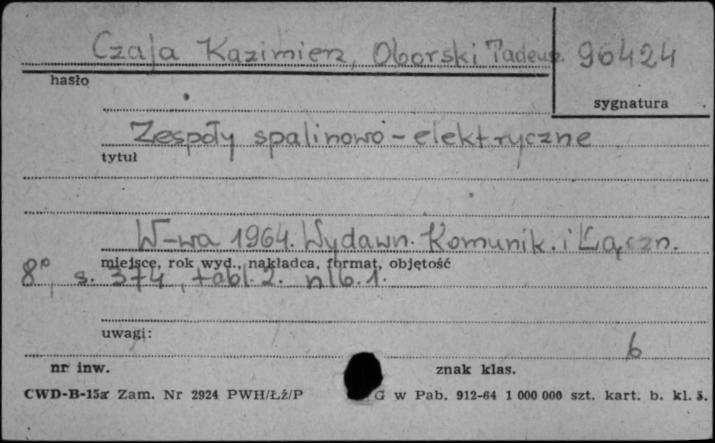 Czaja Kazimierz, Oborski Tadeusz. 96424
hasło
sygnatura
Zespoły spalinowo-elektryczne
tytuł
W-wa 1964. Wydawn. Komunik. i Łączn.
miejsce, rok wyd., nakładca, format, objętość
8°, s. 374, tabl. 2. nlb. 1.
uwagi:
6
nr inw. znak klas.
CWD-B-15a Zam. Nr 2924 PWH/Łź/P G w Pab. 912-64 1 000 000 szt. kart. b. kl. 3.